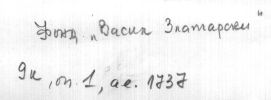 Фонд „Васил Златарски“
9к, оп. 1, а.е. 1737